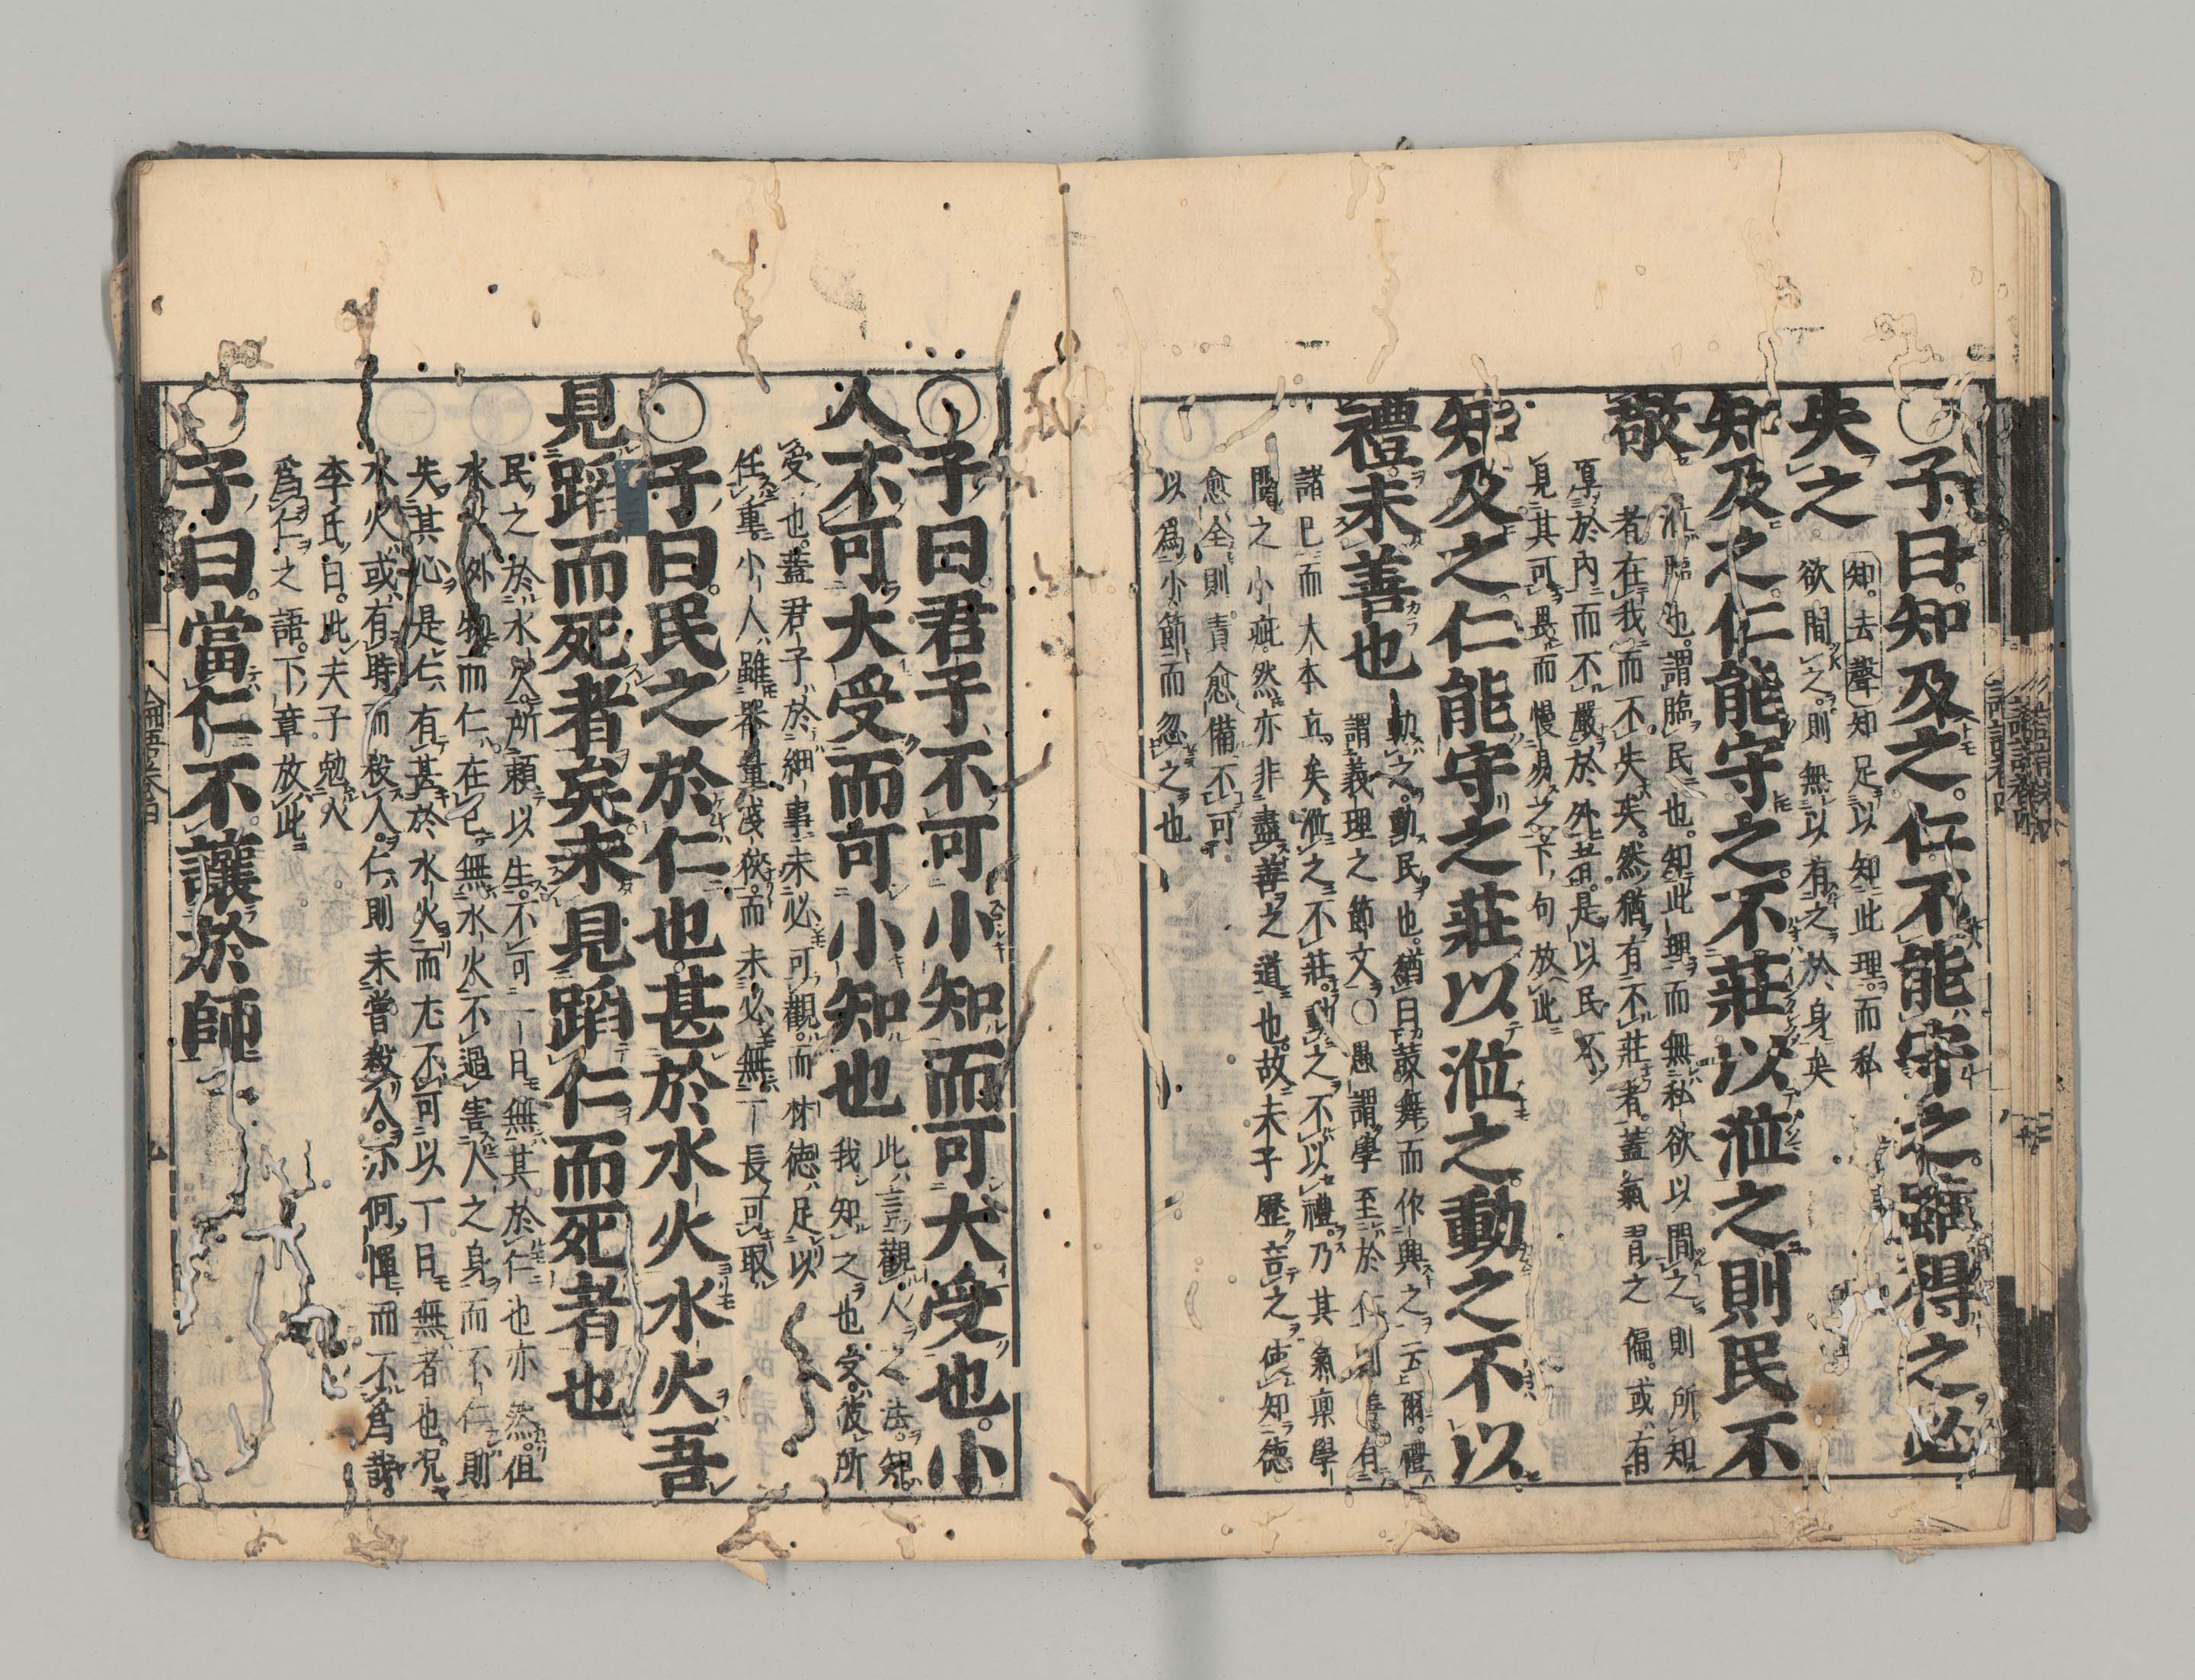 子曰知及之仁不能守之雖得之必
失之
知去聲知足以知此理而私
欲間之則無以有之於身矣
知及之仁能守之不莊以涖之則民不
敬
涖臨也謂臨民也知此理而無私欲以間之則所知
者在我而不失矣然猶有不莊者蓋氣習之偏或有
厚於內而不嚴於外者是以民不
見其可畏而慢易之下句放此
知及之仁能守之莊以涖之動之不以
禮未善也
動之動民也猶曰鼓舞而作興之云爾禮
謂義理之節文○愚謂學至於仁則善有
諸己而大本立矣涖之不莊動之不以禮乃其氣稟學
問之小疵然亦非盡善之道也故夫子歷言之使知德
愈全則責愈備不可
以爲小節而忽之也
子曰君子不可小知而可大受也小
人不可大受而可小知也
此言觀人之法知
我知之也受彼所
受也蓋君子於細事未必可觀而材德足以
任重小人雖器量淺狹而未必無一長可取
子曰民之於仁也甚於水火水火吾
見蹈而死者矣未見蹈仁而死者也
民之於水火所賴以生不可一日無其於仁也亦然但
水火外物而仁在己無水火不過害人之身而不仁則
失其心是仁有甚於水火而尤不可以一日無者也況
水火或有時而殺人仁則未嘗殺人亦何憚而不爲哉
李氏曰此夫子勉人
爲仁之語下章放此
子曰當仁不讓於師